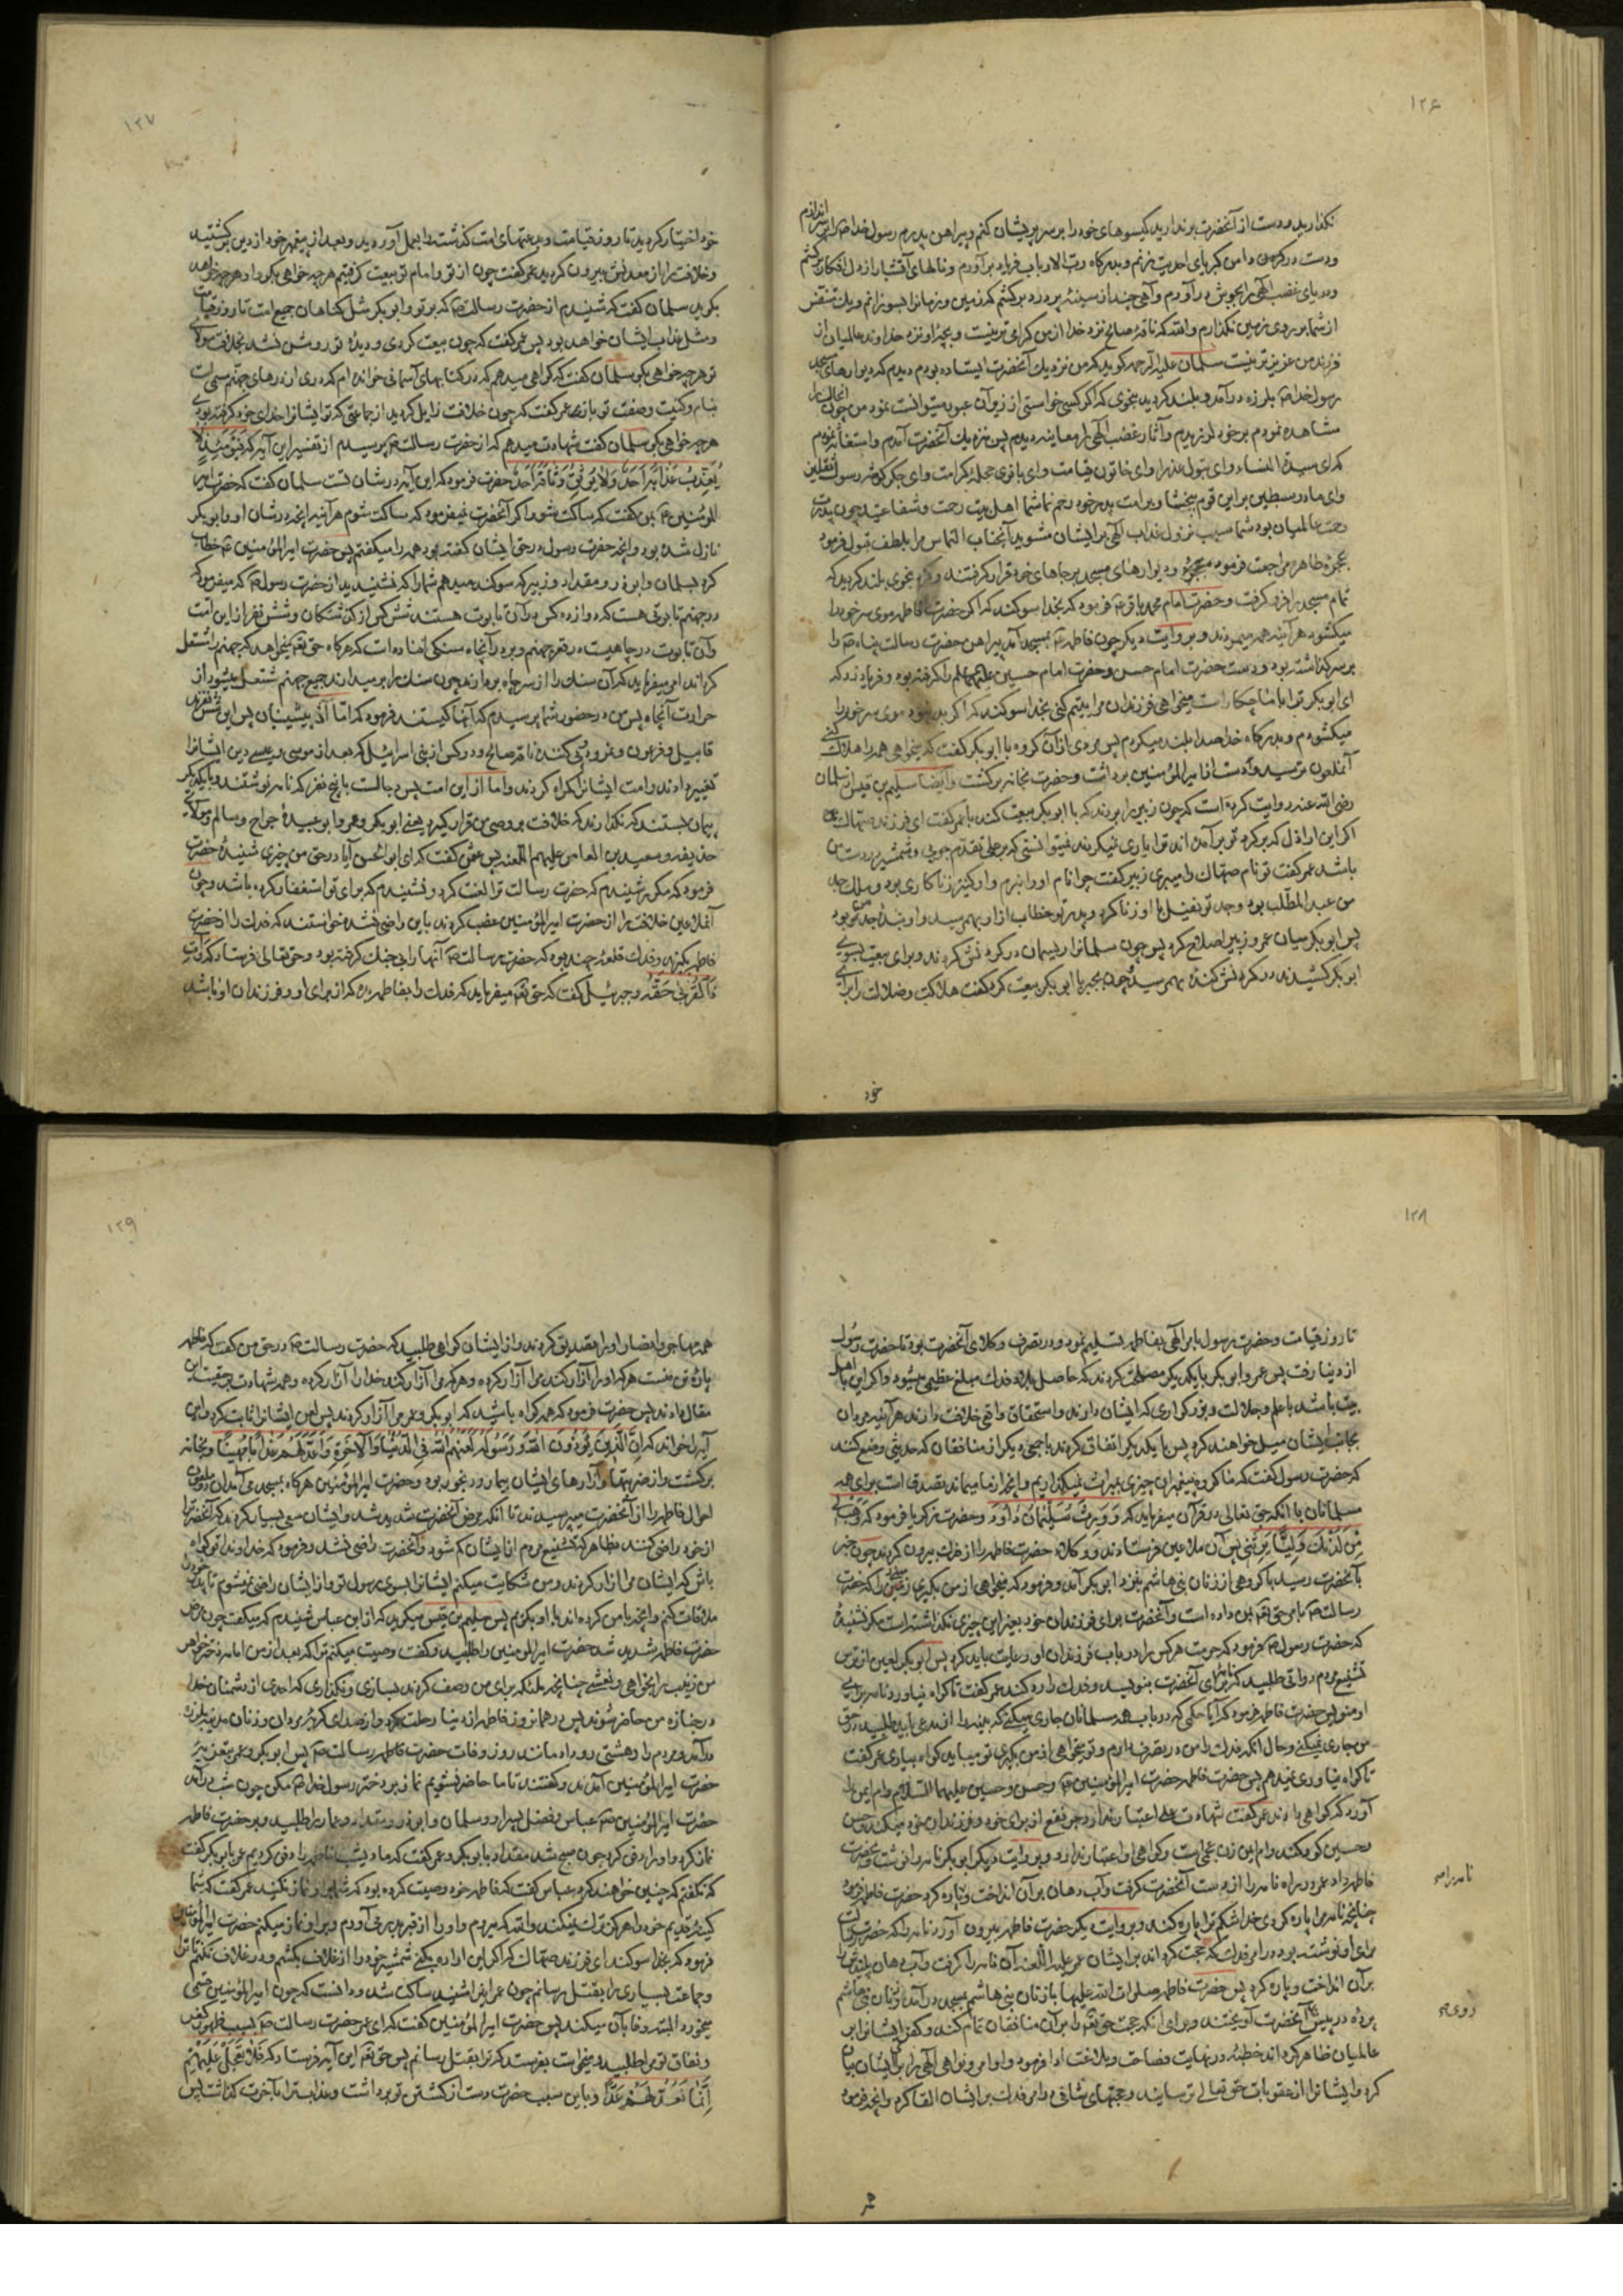 ۱۲۶
نگذارید و دست از آنحضرت برندارید گیسوهای خود را بر سر پریشان کنم و پیراهن پدرم رسول خدا ص را بر سر اندازم
و دست در گرهن دامن کبریای احدیت بزنم و بدرگاه رب الارباب فریاد برآورم و نالهای آتشبار از دل افکار برکشم
و دریای غضب الهی را بجوش درآورم و آهی چند از سینهٔ پر درد برکشم که زمین و زمانرا بسوزانم و یک متنفس
از شما بر روی زمین نگذارم والله که ناقهٔ صالح نزد خدا از من گرامی تر نیست و بچهٔ او نزد خداوند عالمیان از
فرزند من عزیزتر نیست سلمان علیه الرحمه گوید که من نزدیک آنحضرت ایستاده بودم دیدم که دیوارهای مسجد
رسول خدا ص بلرزه درآمد و بلند گردید بنحوی که اگر کسی خواستی از زیر آن عبور میتوانست نمود من چون آنحال را
مشاهده نمودم بر خود لرزیدم و آثار غضب الهی را معاینه دیدم پس نزدیک آنحضرت آمدم و استغاثه نمودم
که ای سیدة النساء و ای بتول عذرا و ای خاتون قیامت و ای بانوی حجله کرامت و ای جگر گوشه رسول ثقلین
و ای مادر سبطین بر این قوم ببخشا و بر امت پدر خود رحم نما شما اهل بیت رحمت و شفاعتید چون پدرت
رحمت عالمیان بود شما سبب نزول عذاب الهی بر ایشان مشوید آنجناب التماس مرا بلطف قبول فرمود
بحجرهٔ طاهره مراجعت فرمود و دیوارهای مسجد بر جاهای خود قرار گرفتند و گرد بنحوی بلند گردید که
تمام مسجد را فرو گرفت و حضرت امام محمد باقر ع فرمود که بخدا سوگند که اگر حضرت فاطمه موی سر خود را
میگشود هر آینه همه میمردند و بروایت دیگر چون فاطمه ع بمسجد آمد پیراهن حضرت رسالت پناه ص را
بر سر گذاشته بود و دست حضرت امام حسن و حضرت امام حسین علیهما السلام را گرفته بود و فریاد زد که
ای ابوبکر ترا با ما چکار است میخواهی فرزندان مرا یتیم کنی بخدا سوگند که اگر بد نبود موی سر خود را
میگشودم و بدرگاه خدا صدا بلند میکردم پس مردی از آن گروه با ابوبکر گفت که میخواهی همه را هلاک کنی
آنملعون ترسید و دست از امیرالمؤمنین برداشت و حضرت بخانه برگشت وایضا سلیم بن قیس از سلمان
رضی الله عنه روایت کرده است که چون زبیر را بردند که با ابوبکر بیعت کند با عمر گفت ای فرزند صهاک
اگر این اراذل که بر گرد تو برآمده اند ترا یاری نمیکردند نمیتوانستی که بر علی تقدم جویی و شمشیر در دست من
باشد عمر گفت تو نام صهاک را میبری زبیر گفت چرا نام او را نبرم و او کنیز زناکاری بود و ملک جد
من عبدالمطلب بود و جد تو نفیل با او زنا کرد و پدر تو خطاب از او بهم رسید و او بندهٔ جد من بود
پس ابوبکر میان عمر و زبیر اصلاح کرد پس چون سلمانرا ریسمان در گردنش کردند و برای بیعت بسوی
ابوبکر کشیدند در گردنش کنده بهم رسید و چون بجبر با ابوبکر بیعت کرد گفت هلاکت و ضلالت را برای
خود
۱۲۷
خود اختیار کردید تا روز قیامت و بدعتهای امت گذشته را بعمل آوردید و بعد از پیغمبر خود از دین برگشتید
و خلافت را از معدنش بیرون کردید عمر گفت چون از تو و امام تو بیعت گرفتیم هر چه خواهی بگو و او هر چه خواهد
بگوید سلمان گفت که شنیدم از حضرت رسالت ص که بر تو و ابوبکر مثل گناهان جمیع امت تا روز قیامت
و مثل عذاب ایشان خواهد بود پس عمر گفت که چون بیعت کردی و دیدهٔ تو روشن نشد بخلافت مولای
تو هر چه خواهی بگو سلمان گفت که گواهی میدهم که در کتابهای آسمانی خوانده ام که دری از درهای جهنم مسمی است
بنام و کنیت و صفت تو باز عمر گفت که چون خلافت زایل گردید از جماعتی که تو ایشانرا خدای خود گرفته بودی
هر چه خواهی بگو سلمان گفت شهادت میدهم که از حضرت رسالت ص پرسیدم از تفسیر این آیه که فَیَوْمَئِذٍ لَا
یُعَذِّبُ عَذَابَهُ أَحَدٌ وَلَا یُوثِقُ وَثَاقَهُ أَحَدٌ حضرت فرمود که این آیه در شان تست سلمان گفت که حضرت امیر
المؤمنین ع بمن گفت که ساکت شو و اگر آنحضرت نمیفرمود که ساکت شوم هر آینه آنچه در شان او و ابوبکر
نازل شده بود و آنچه حضرت رسول در حق ایشان گفته بود همه را میگفتم پس حضرت امیر المؤمنین ع خطاب
کرد بسلمان و ابوذر و مقداد و زبیر که سوگند میدهم شما را که نشنیدید از حضرت رسول ص که میفرمود که
در جهنم تابوتی هست که دوازده کس در آن تابوت هستند شش کس از گذشتگان و شش نفر از این امت
و آن تابوت در چاهیست در قعر جهنم و بر در آنچاه سنگی افتاده است که هرگاه حق تع میخواهد که جهنم را مشتعل
گرداند امر میفرماید که آن سنک را از سر چاه بردارند چون سنک را بر میدارند جمیع جهنم مشتعل میشود از
حرارت آنچاه پس من در حضور شما پرسیدم که آنها کیستند فرمود که اما از پیشینیان پس این شش نفرند
قابیل و فرعون و نمرود و پی کننده ناقه صالح و دو کس از بنی اسرائیل که بعد از موسی و عیسی دین ایشانرا
تغییر دادند و امت ایشانرا گمراه کردند و اما از این امت پس دجالست با پنج نفر که نامه نوشتند و با یکدیگر
پیمان بستند که نگذارند که خلافت بر وصی من قرار گیرد یعنی ابوبکر و عمر و ابو عبیدهٔ جراح و سالم مولای
حذیفه و سعید بن العاص علیهم اللعنه پس عمر گفت که ای ابوالحسن آیا در حق من چیزی شنیدهٔ حضرت
فرمود که مکرر شنیدم که حضرت رسالت ترا لعنت کرد و نشنیدم که برای تو استغفار کرده باشد و چون
آنملاعین خلافت را از حضرت امیر المؤمنین غصب کردند باین راضی نشده خواستند که فدک را از حضرت
فاطمه بگیرند و فدک قلعهٔ چند بود که حضرت رسالت ص آنها را بی جنک گرفته بود و حق تعالی فرستاد که وَآتِ
ذَا الْقُرْبَی حَقَّهُ و جبرئیل گفت که حق تع میفرماید که فدک را بفاطمه ده که از برای او و فرزندان او باشد
۱۲۸
تا روز قیامت و حضرت رسول بامر الهی بفاطمه تسلیم نمود و در تصرف وکلای آنحضرت بود تا حضرت رسول
از دنیا رفت پس عمر و ابوبکر با یکدیگر مصلحت کردند که حاصل بلاد فدک مبلغ عظیمی میشود و اگر این با اهل
بیت باشد با علم و جلالت و بزرگواری که ایشان دارند و استحقاق واقعی خلافت دارند هر آینه مردمان
بجانب ایشان میل خواهند کرد پس با یکدیگر اتفاق کردند با جمعی دیگر از منافقان که حدیثی وضع کنند
که حضرت رسول گفت که ما گروه پیغمبران چیزی میراث نمیگذاریم و آنچه از ما میماند تصدق است برای همه
مسلمانان با آنکه حق تعالی در قرآن میفرماید که وَوَرِثَ سُلَیْمَانُ دَاوُدَ و حضرت زکریا فرمود که فَهَبْ لِی
مِن لَّدُنکَ وَلِیًّا یَرِثُنِی پس آن ملاعین فرستادند و وکلای حضرت فاطمه را از فدک بیرون کردند چون خبر
بآنحضرت رسید با گروهی از زنان بنی هاشم بنزد ابوبکر آمد و فرمود که میخواهی از من بگیری زمینی را که حضرت
رسالت ص بامر حق تع بمن داده است و آنحضرت برای فرزندان خود بغیر این چیزی نگذاشته است مگر نشنیدهٔ
که حضرت رسول ص فرمود که حرمت هر کس را در باب فرزندان او رعایت باید کرد پس ابوبکر لعین از ترس
تشنیع مردم دواتی طلبید که نامهٔ برای آنحضرت بنویسد و فدک را رد کند عمر گفت تا گواه نیاورد نامه برای
او منویس حضرت فاطمه فرمود که آیا حکمی که در باب همه مسلمانان جاری میکنی که بینه را از مدعی باید طلبید در حق
من جاری نمیکنی و حال آنکه فدک را من در تصرف دارم و تو میخواهی از من بگیری تو میباید گواه بیاری عمر گفت
تا گواه نیاوری نمیدهم پس حضرت فاطمه حضرت امیر المؤمنین ع و حسن و حسین علیهما السلام و ام ایمن را
آورد که گواهی دادند عمر گفت شهادت علی اعتبار ندارد جر نفع از برای خود و فرزندان خود میکند و حسن
و حسین کودکند و ام ایمن زن عجمی است و گواهی او اعتبار ندارد و بروایت دیگر ابوبکر نامه را نوشت و بحضرت
فاطمه داد عمر در راه نامه را از دست آنحضرت گرفت و آب دهان بر آن انداخت و پاره کرد حضرت فاطمه فرمود
چنانچه نامه مرا پاره کردی خدا شکم ترا پاره کند و بروایت دیگر حضرت فاطمه بیرون آورد نامه را که حضرت رسالت
برای او نوشته بود در امر فدک که حجت گرداند بر ایشان عمر علیه اللعنه آن نامه را گرفت و آب دهان پلید خود را
بر آن انداخت و پاره کرد پس حضرت فاطمه صلوات الله علیها با زنان بنی هاشم بمسجد درآمد و زنان بنی هاشم
پرده در پیش آنحضرت آویختند و برای آنکه حجت حق تع را بر آن منافقان تمام کند و کفر ایشانرا بر
عالمیان ظاهر گرداند خطبهٔ در نهایت فصاحت و بلاغت ادا فرمود و اوامر و نواهی الهی را بر ایشان بیان
کرد و ایشانرا از عقوبات حق تعالی ترسانید و حجتهای شافی در امر فدک بر ایشان القا کرد و آنچه فرمود
۱۲۹
همه مهاجر و انصار او را تصدیق کردند و از ایشان گواهی طلبید که حضرت رسالت ص در حق من گفت که فاطمه
پارهٔ تن منست هر که او را آزار کند مرا آزار کرده و هر که مرا آزار کند خدا را آزار کرده و همه شهادت بر حقیت این
مقال دادند پس حضرت فرمود که همه گواه باشید که ابوبکر و عمر مرا آزار کردند پس لعن ایشانرا ثابت کرد و این
آیه را خواند که إِنَّ الَّذِینَ یُؤْذُونَ اللَّهَ وَرَسُولَهُ لَعَنَهُمُ اللَّهُ فِی الدُّنْیَا وَالْآخِرَةِ وَأَعَدَّ لَهُمْ عَذَابًا مُّهِینًا و بخانه
برگشت و از ضربتها و آزارهای ایشان بیمار و رنجور بود و حضرت امیر المؤمنین هرگاه بمسجد می آمد آن دو ملعون
احوال فاطمه را از آنحضرت میپرسیدند تا آنکه مرض آنحضرت شدید شد و ایشان سعی بسیار کردند که آنحضرترا
از خود راضی کنند بظاهر که تشنیع مردم از ایشان کم شود و آنحضرت راضی نشد و فرمود که خداوندا تو گواه
باش که ایشان مرا آزار کردند و من شکایت میکنم ایشانرا بسوی رسول تو و از ایشان راضی نمیشوم تا پدر خود را
ملاقات کنم و آنچه با من کرده اند با او بگویم پس سلیم بن قیس میگوید که از ابن عباس شنیدم که میگفت چون مرض
حضرت فاطمه شدید شد حضرت امیر المؤمنین را طلبید و گفت وصیت میکنم ترا که بعد از من امامه دختر خواهر
من زینب را بخواهی و نعشی چنانچه ملئکه برای من وصف کردند بسازی و نگذاری که احدی از دشمنان خدا
در جنازه من حاضر شوند پس در همانروز فاطمه از دنیا رحلت کرد و از صدای گریهٔ مردان و زنان مدینه بلرزه
درآمد و مردم را دهشتی رو داد مانند روز وفات حضرت رسالت ص پس ابوبکر و عمر بتعزیهٔ
حضرت امیر المؤمنین آمدند و گفتند تا ما حاضر نشویم نماز بر دختر رسول خدا ص مکن چون شب درآمد
حضرت امیر المؤمنین ع عباس و فضل پسر او و سلمان و ابوذر و مقداد و عمار را طلبید و بر حضرت فاطمه
نماز کرد و او را دفن کرد چون صبح شد مقداد با ابوبکر و عمر گفت که ما دیشب فاطمه را دفن کردیم عمر با ابوبکر گفت
که نگفتم که چنین خواهند کرد عباس گفت که فاطمه خود وصیت کرده بود که شما بر او نماز نکنید عمر گفت که شما
کینهٔ قدیم خود را هرگز ترک نمیکنید والله که میروم و او را از قبر بدر می آورم و بر او نماز میکنم حضرت امیر المؤمنین
فرمود که بخدا سوگند ای فرزند صهاک که اگر این اراده بکنی شمشیر خود را از غلاف بکشم و در غلاف نکنم تا ترا
و جماعت بسیاری را بقتل رسانم چون عمر اینرا شنید ساکت شد و دانست که چون امیر المؤمنین قسمی
میخورد البته وفا بآن میکند پس حضرت امیر المؤمنین گفت که ای عمر حضرت رسالت ص بسبب ظهور کفر
و نفاق تو مرا طلبید و میخواست بفرستد که ترا بقتل رسانم پس حق تع این آیه فرستاد که فَلَا تَعْجَلْ عَلَیْهِمْ
إِنَّمَا نَعُدُّ لَهُمْ عَدًّا و باین سبب حضرت دست از کشتن تو برداشت و عذاب ترا بآخرت گذاشت پس